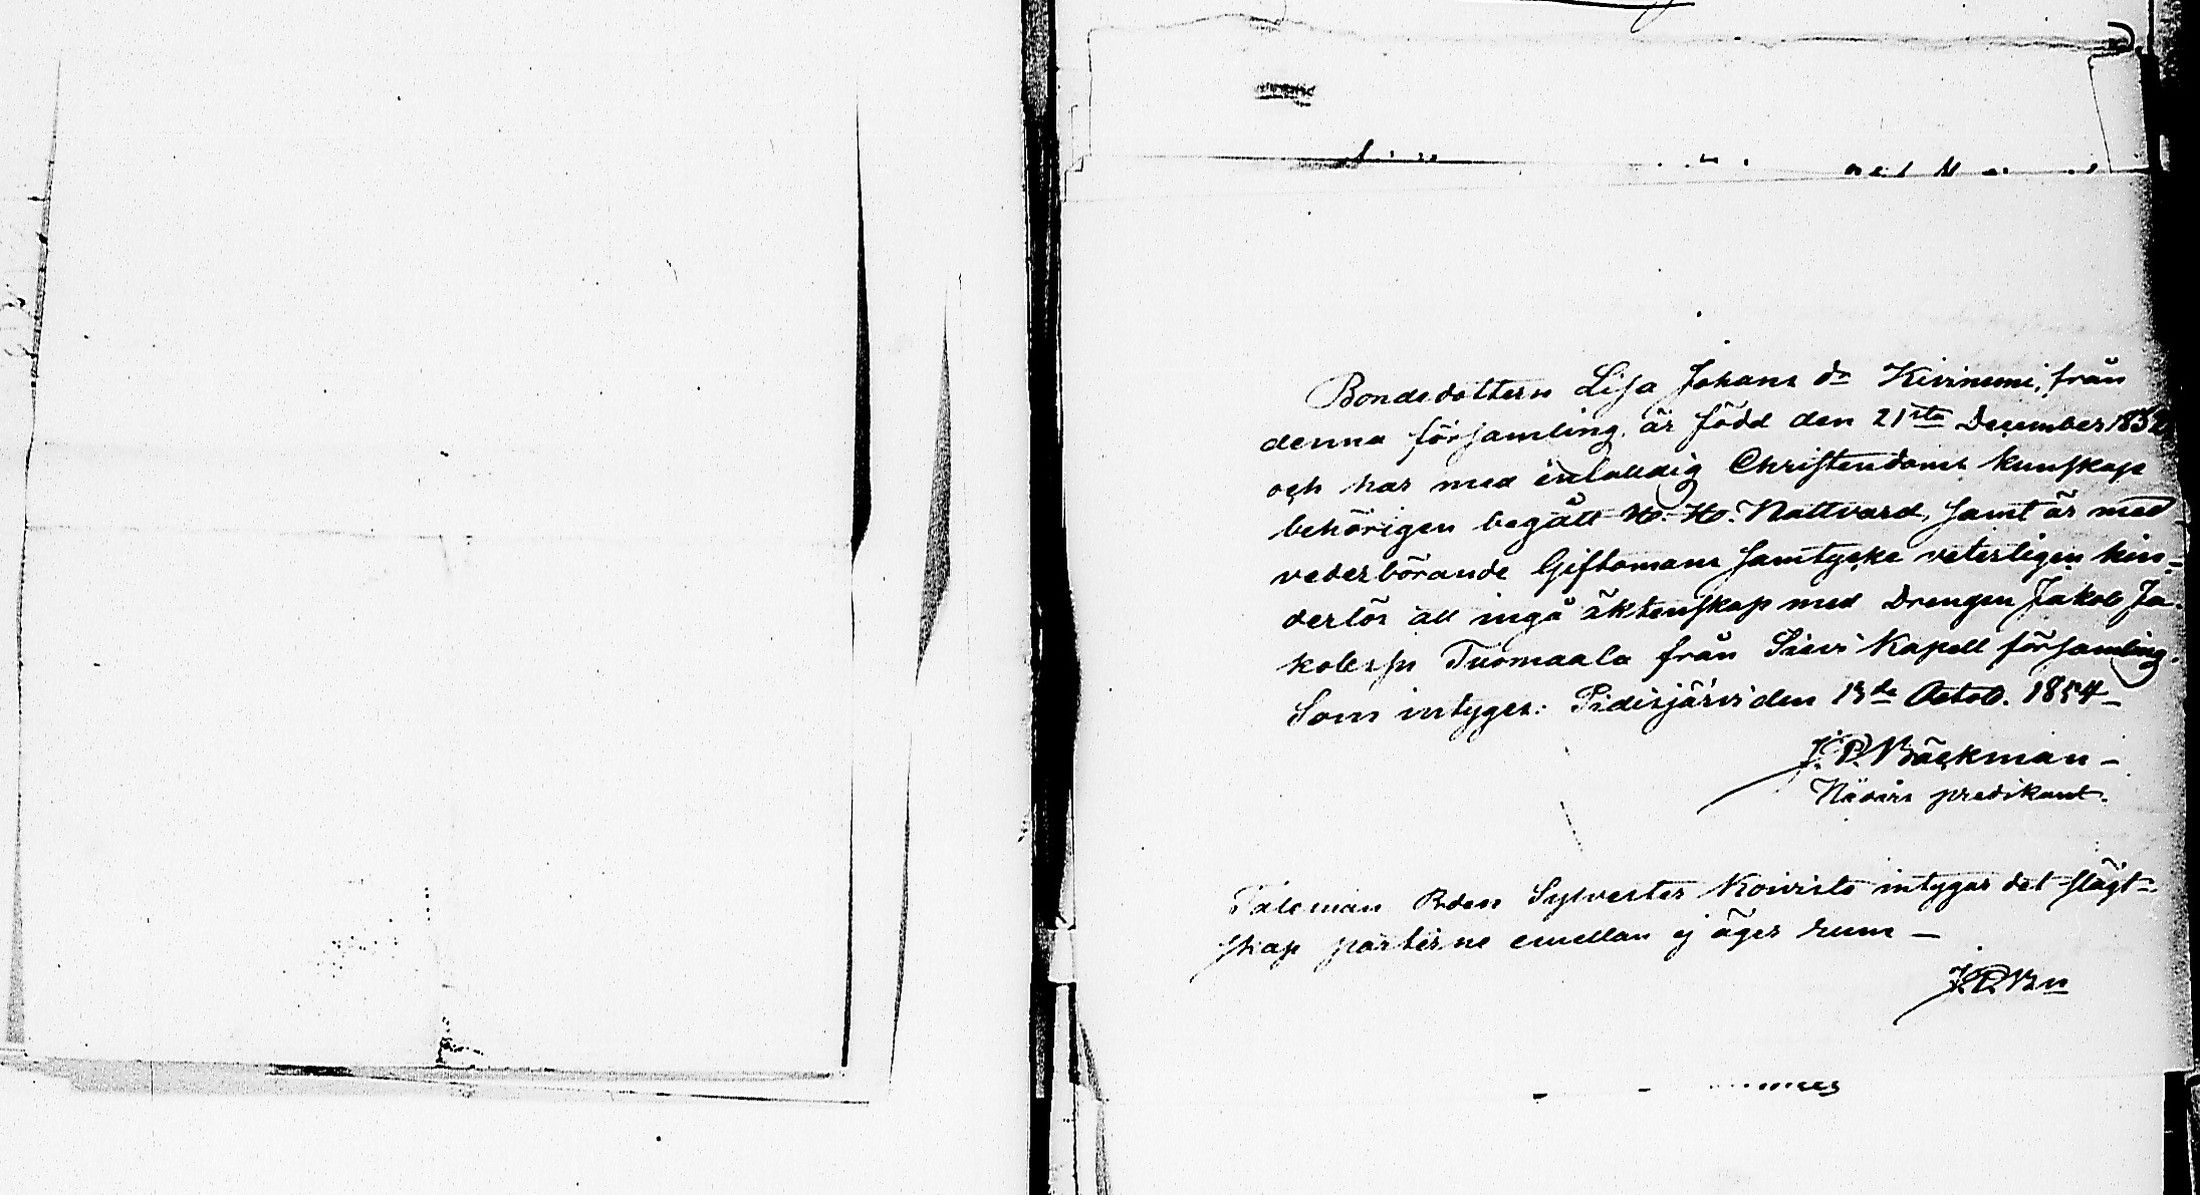 Bondedottern Lisa Johans dr Kiviniemi, från
denna församling, är född den 21sta December 1832
och har med enfalldig Christendoms kunskap
behörigen begått H. H. Nattvard, samt är med
vederbörande Giftomans samtycke veterligen hin-
derlös att ingå äktenskap med Drengen Jakob Ja-
kobsson Tuomaala från Sievi Kapell församling.
Som intygas: Pidisjärvi den 13de Octob. 1854
J. P. Bäckman
Nådårs predikant.
Taleman Bden Sylvester Koivisto intygar det slägt-
skap parterne emellan ej äger rum
J. P. Bn